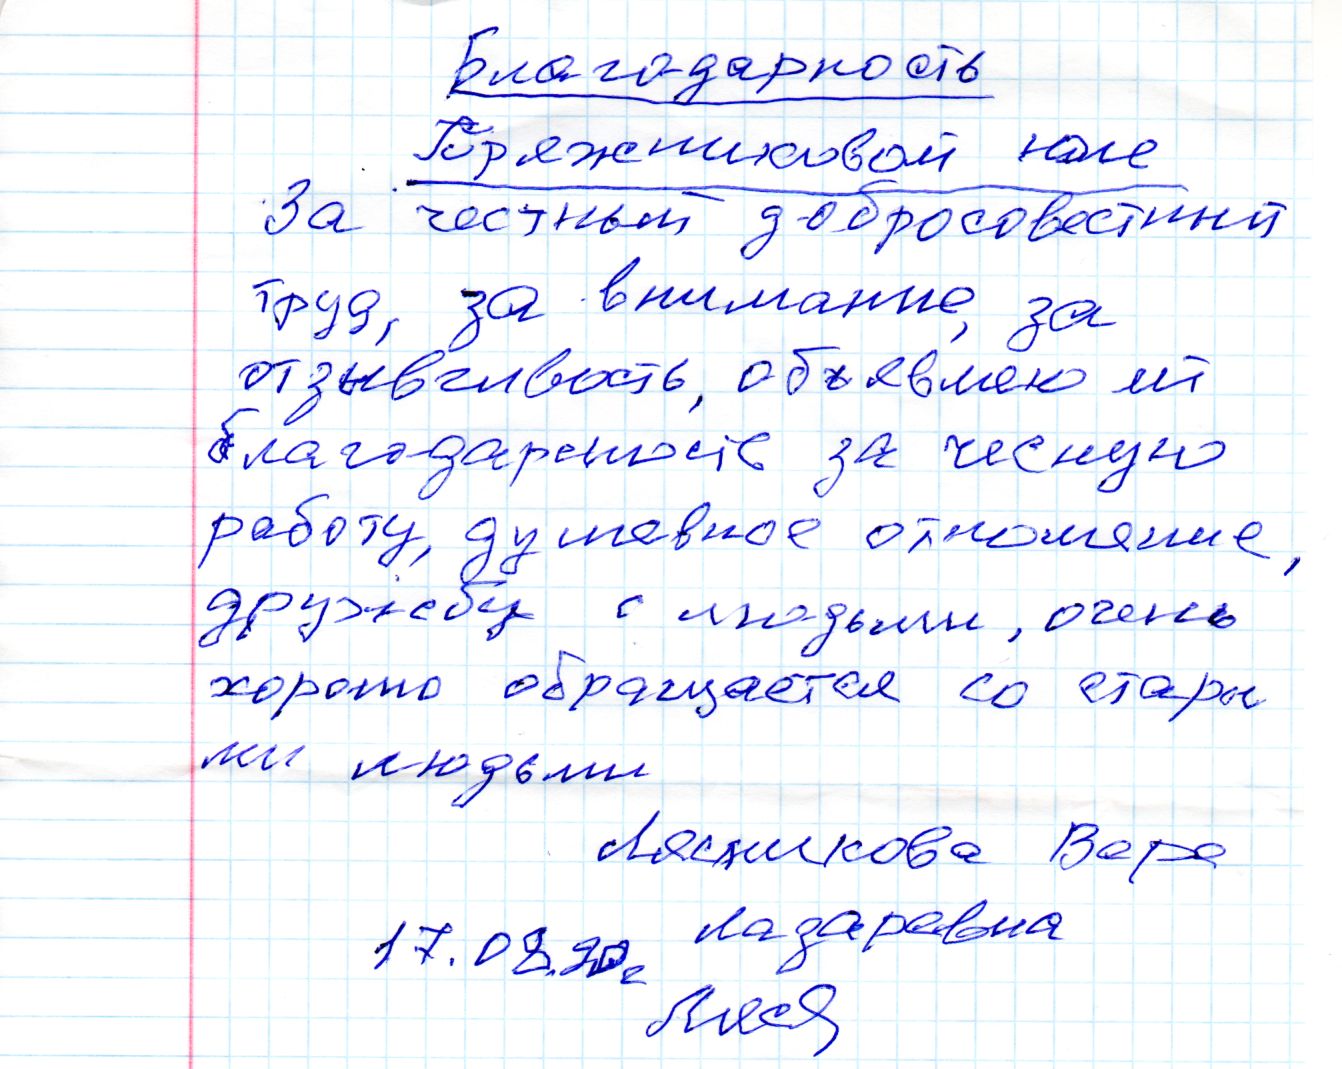 Благодарность
Горяжниковой Юле
За честный добросовестный
труд, за внимание, за
отзывчивость, объявляю ей
благодарность за чесную
работу, душевное отношение,
дружбу с людьми, очень
хорошо обращается со стары
ми людьми
Лясникова Вера
Лазаревна
17.08.20г